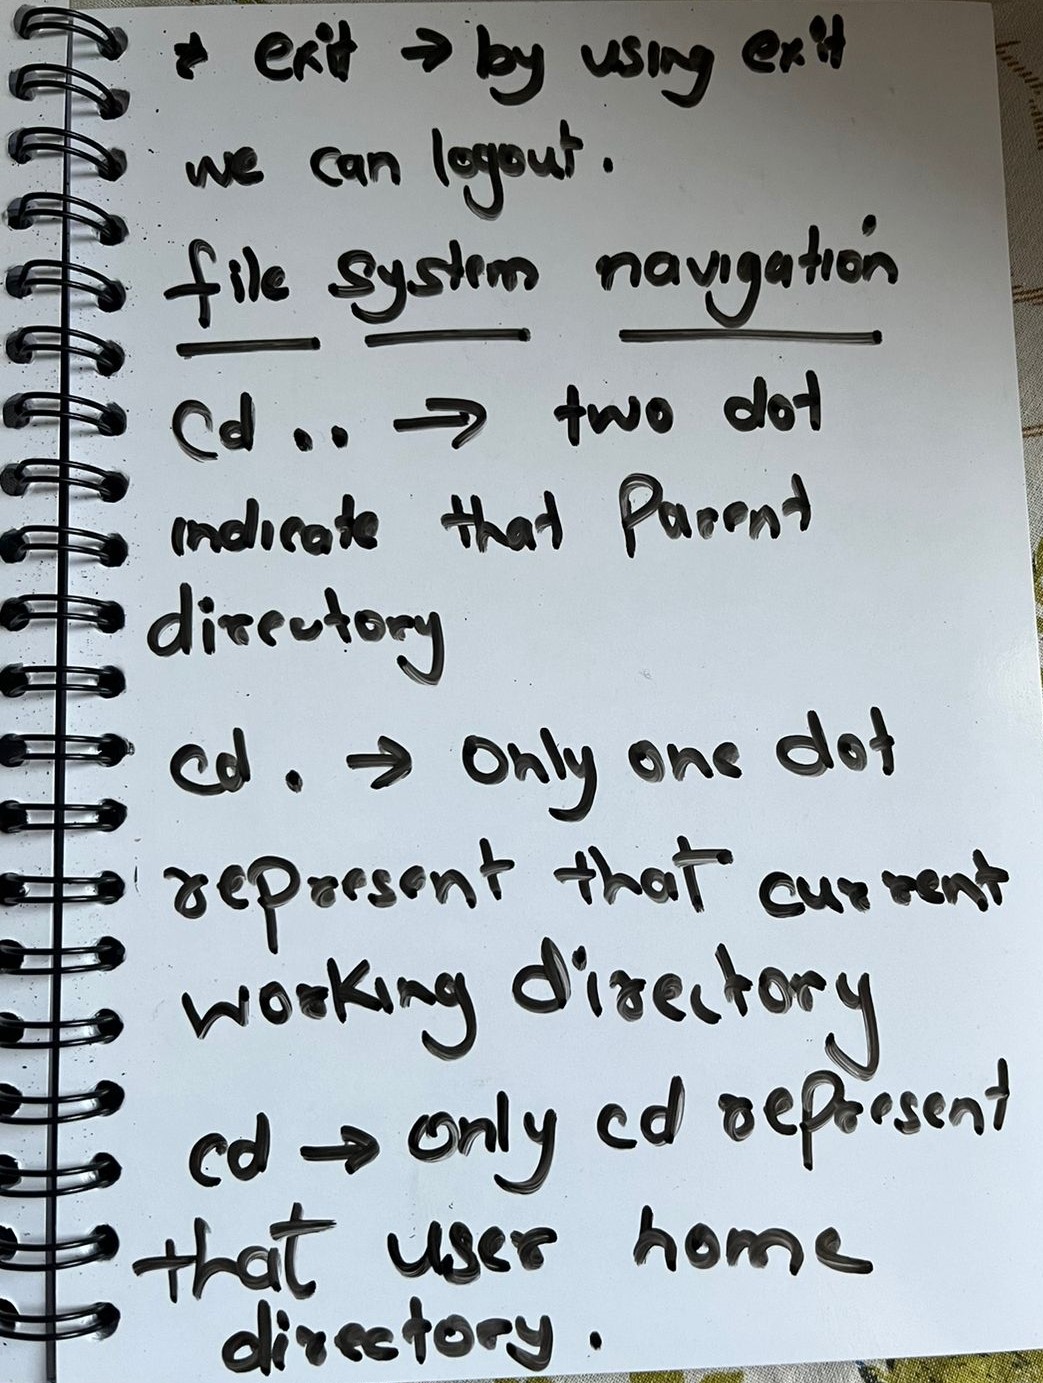 * exit → by using exit
we can logout.
file system navigation
cd .. → two dot
indicate that Parent
directory
cd . → only one dot
represent that current
working directory
cd → only cd represent
that user home
directory.